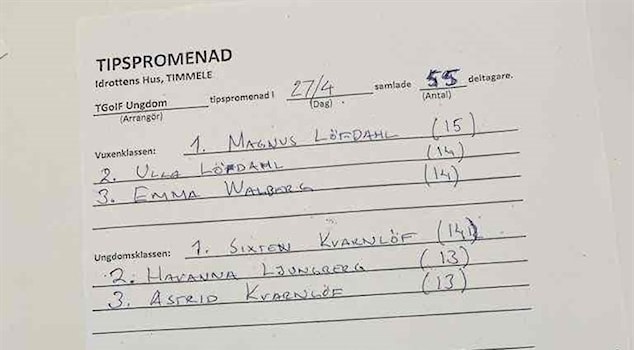 TIPSPROMENAD
Idrottens Hus, TIMMELE
TGoIF Ungdom tipspromenad i 27/4 samlade 55 deltagare.
(Arrangör) (Dag) (Antal)
Vuxenklassen: 1. MAGNUS LÖFDAHL (15)
2. ULLA LÖFDAHL (14)
3. EMMA WALBERG (14)
Ungdomsklassen: 1. SIXTEN KVARNLÖF (14)
2. HAVANNA LJUNGBERG (13)
3. ASTRID KVARNLÖF (13)